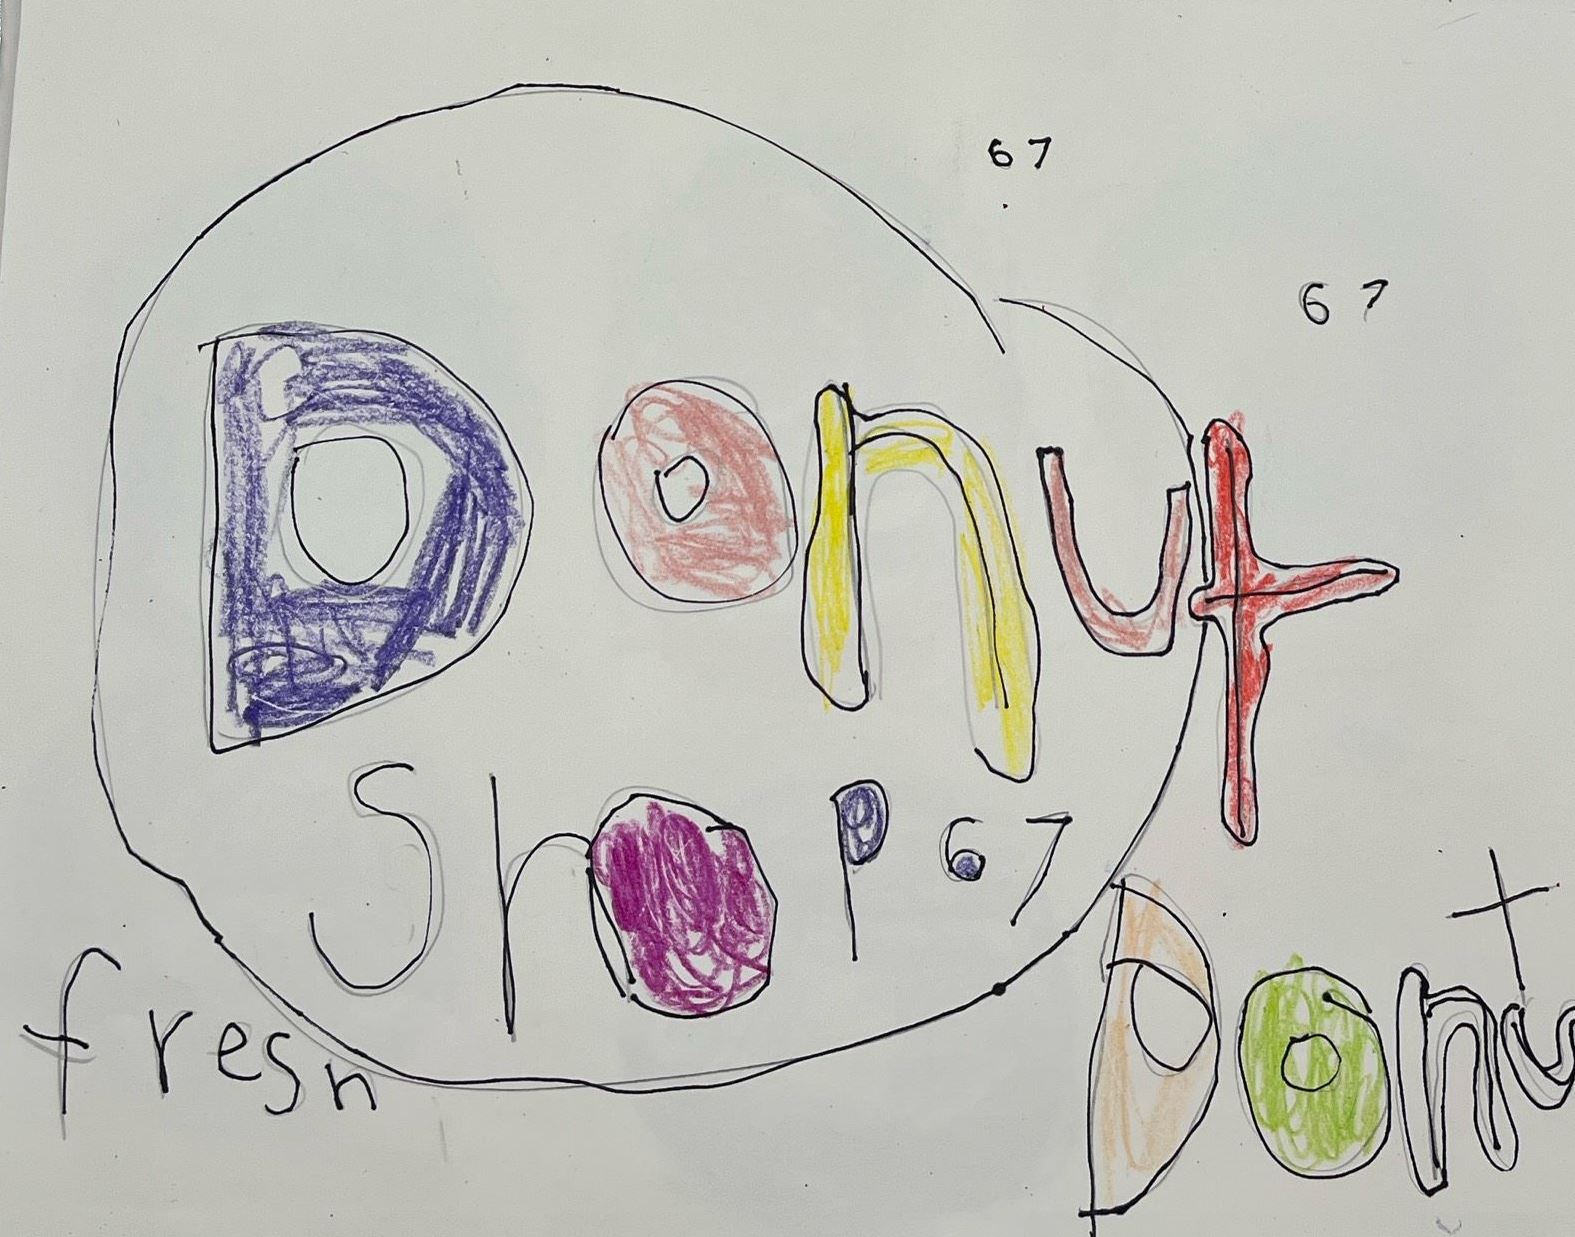 67
67
Donut
Shop 67
fresh
Donut